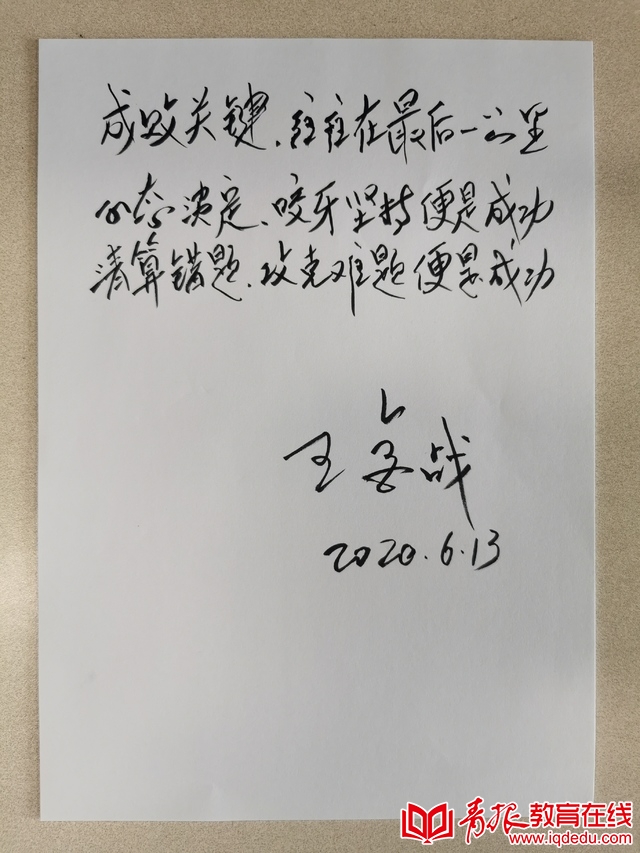 成败关键、往往在最后一公里
心态决定、咬牙坚持便是成功
清算错题、攻克难题便是成功
王金战
2020.6.13
青报教育在线
www.iqdedu.com